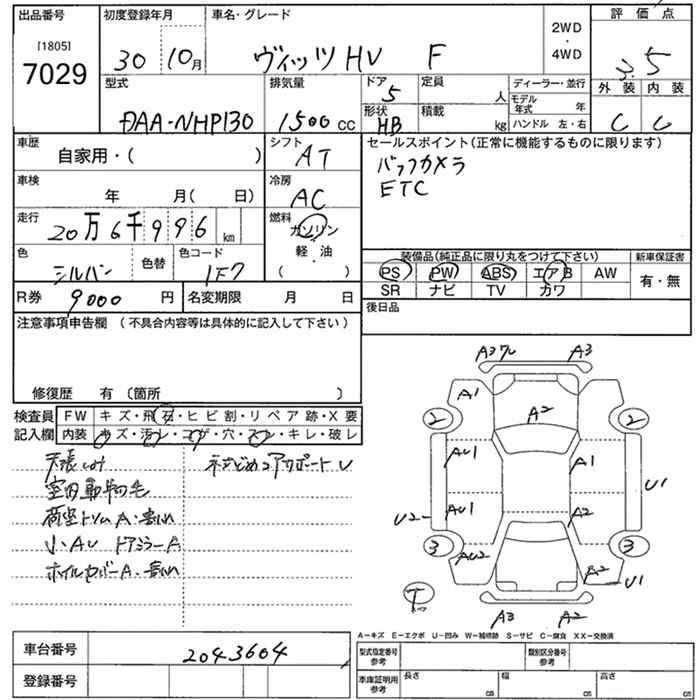 出品番号
[1805]
7029
初度登録年月
30 10月
車名・グレード
ヴィッツHV F
2WD
・
4WD
評価点
3.5
外装 内装
C C
型式
DAA-NHP130
排気量
1500 cc
ドア
5
形状
HB
定員
人
積載
kg
ディーラー・並行
モデル年式 年
ハンドル 左・右
車歴
自家用・( )
シフト
AT
車検
年 月( 日)
冷房
AC
走行
20万6千996 km
燃料
ガソリン
軽・油
( ・ )
色
シルバー
色替
色コード
1F7
R券
9000 円
名変期限 月 日
セールスポイント(正常に機能するものに限ります)
バックカメラ
ETC
装備品(純正品に限り丸をつけて下さい)
PS PW ABS エアB AW
SR ナビ TV カワ
新車保証書
有・無
後日品
注意事項申告欄 (不具合内容等は具体的に記入して下さい)
修復歴 有〔箇所 〕
検査員
記入欄
FW キズ・飛石・ヒビ割・リペア跡・X要
内装 キズ・汚レ・コゲ・穴・スレ・キレ・破レ
天張しみ
室内動物毛
荷室トリムA・割れ
小・AU ドアミラーA
ホイルカバーA・割れ
コアサポートU
A3ワレ A3
A1
2 2
A2
AU1 A1
U1
AU1 A2
U2
3 3
AU2 A2
U1
T
A3 A2
A-キズ E-エクボ U-凹み W-補修跡 S-サビ C-腐食 XX-交換済
車台番号
2043604
登録番号
型式指定番号
参考
類別区分番号
参考
車庫証明用
参考
長さ cm
幅 cm
高さ cm